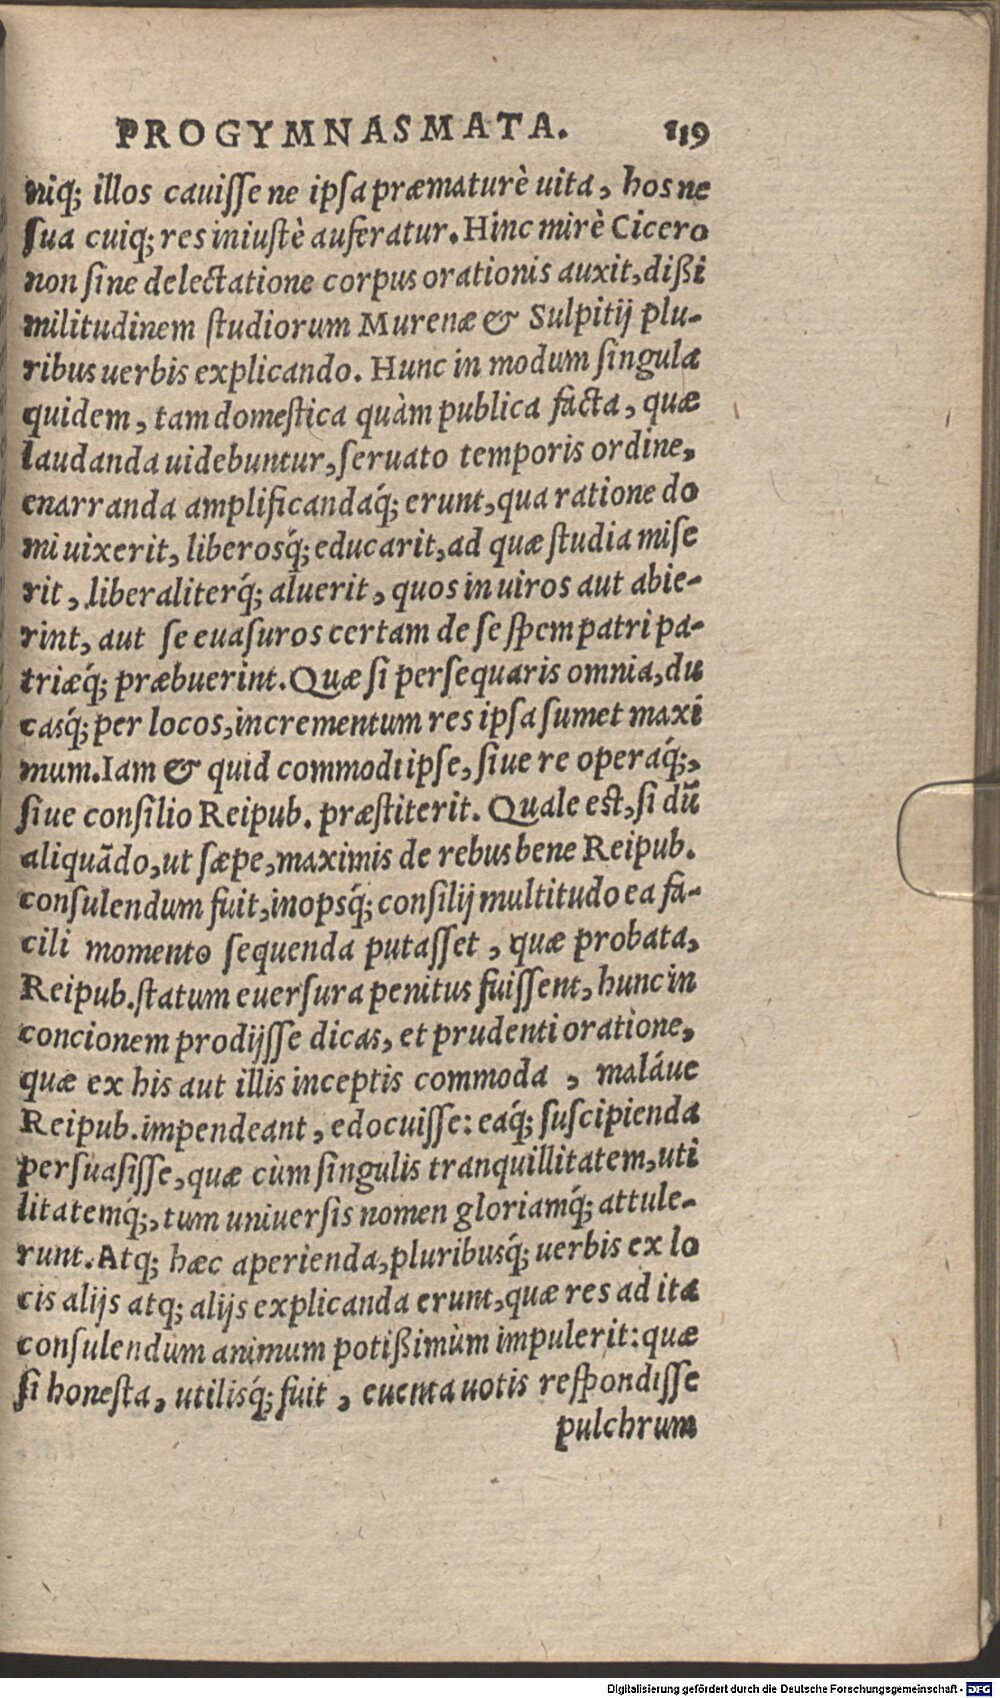 PROGYMNASMATA. 119
niq; illos cauiſſe ne ipſa præmaturè uita, hos ne
ſua cuiq; res iniuſtè auferatur. Hinc mirè Cicero
non ſine delectatione corpus orationis auxit, dißi
militudinem ſtudiorum Murenæ & Sulpitij plu-
ribus uerbis explicando. Hunc in modum ſingula
quidem, tam domeſtica quàm publica facta, quæ
laudanda uidebuntur, ſeruato temporis ordine,
enarranda amplificandaq́; erunt, qua ratione do
mi uixerit, liberosq́; educarit, ad quæ ſtudia miſe
rit, liberaliterq́; aluerit, quos in uiros aut abie-
rint, aut ſe euaſuros certam de ſe ſpem patri pa-
triæq́; præbuerint. Quæ ſi perſequaris omnia, du
casq́; per locos, incrementum res ipſa ſumet maxi
mum. Iam & quid commodi ipſe, ſiue re operaq́;,
ſiue conſilio Reipub. præſtiterit. Quale est, ſi dũ
aliquãdo, ut ſæpe, maximis de rebus bene Reipub.
conſulendum fuit, inopsq́; conſilij multitudo ea fa-
cili momento ſequenda putaſſet, quæ probata,
Reipub. ſtatum euerſura penitus fuiſſent, hunc in
concionem prodijſſe dicas, et prudenti oratione,
quæ ex his aut illis inceptis commoda, maláue
Reipub. impendeant, edocuiſſe: eaq́; ſuſcipienda
perſuaſiſſe, quæ cùm ſingulis tranquillitatem, uti
litatemq́;, tum uniuerſis nomen gloriamq́; attule-
runt. Atq; hæc aperienda, pluribusq́; uerbis ex lo
cis alijs atq; alijs explicanda erunt, quæ res ad ita
conſulendum animum potißimùm impulerit: quæ
ſi honeſta, utilisq́; fuit, euenta uotis reſpondiſſe
pulchrum
Digitalisierung gefördert durch die Deutsche Forschungsgemeinschaft - DFG